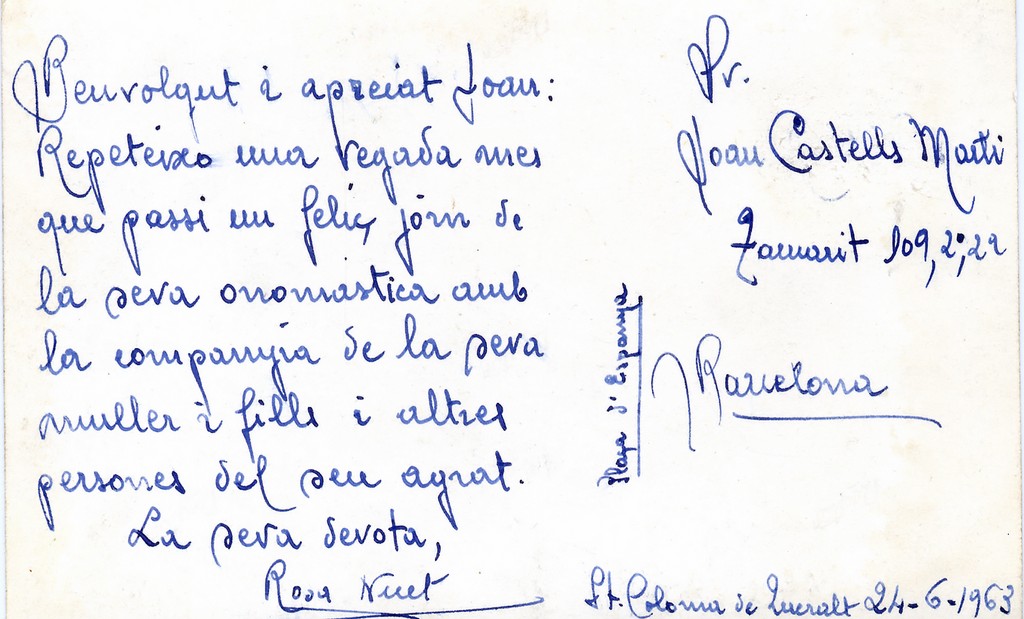 Benvolgut i apreciat Joan:
Repeteixo una vegada mes
que passi un feliç jorn de
la seva onomastica amb
la companyia de la seva
muller i fills i altres
persones del seu agrat.
La seva devota,
Rosa Nuet
Sr.
Joan Castells Marti
Tamarit 109, 2º, 2ª
Plaça d'Espanya
Barcelona
St. Coloma de Queralt 24-6-1963